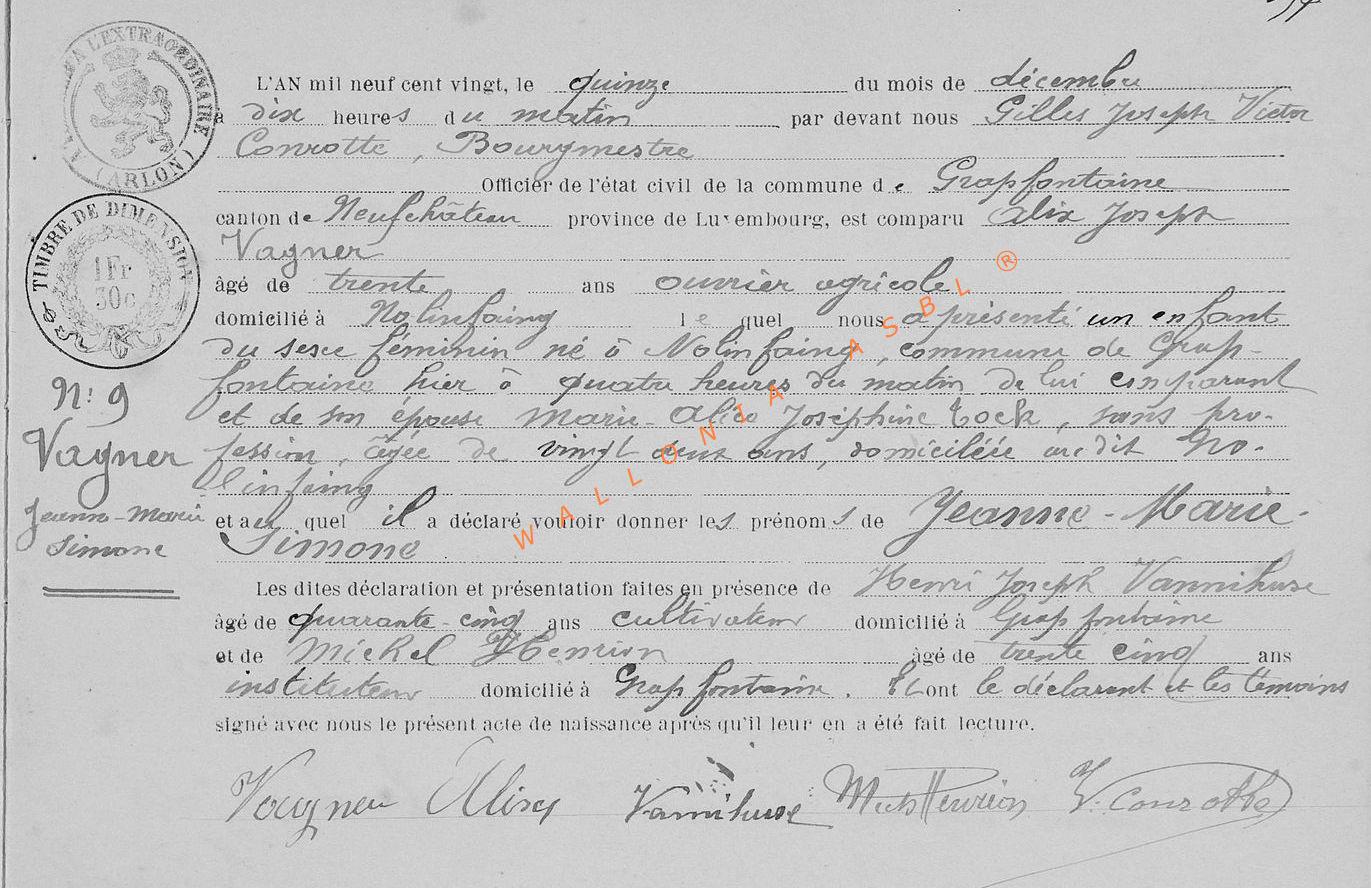 A L'EXTRAORDINAIRE
(ARLON)
TIMBRE DE DIMENSION
1Fr
30c
L'AN mil neuf cent vingt, le quinze du mois de décembre
à dix heures du matin par devant nous Gilles Joseph Victor
Conrotte, Bourgmestre
Officier de l'état civil de la commune de Grapfontaine
canton de Neufchâteau province de Luxembourg, est comparu Alix Joseph
Vagner
âgé de trente ans ouvrier agricole
domicilié à Nolinfaing lequel nous a présenté un enfant
du sexe féminin né à Nolinfaing, commune de Grap-
fontaine hier à quatre heures du matin de lui comparant
et de son épouse Marie-Alice Joséphine Tock, sans pro-
fession, âgée de vingt deux ans, domiciliée au dit No-
linfaing
et au quel il a déclaré vouloir donner les prénoms de Jeanne-Marie-
Simone
Les dites déclaration et présentation faites en présence de Henri Joseph Vannihuse
âgé de quarante-cinq ans cultivateur domicilié à Grapfontaine
et de Michel Henrion âgé de trente cinq ans
instituteur domicilié à Grapfontaine. Et ont le déclarant et les témoins
signé avec nous le présent acte de naissance après qu'il leur en a été fait lecture.
N: 9
Vagner
Jeanne-Marie
Simone
Vagner Alix Vannihuse Mich Henrion V. Conrotte
WALLONIA ASBL ®